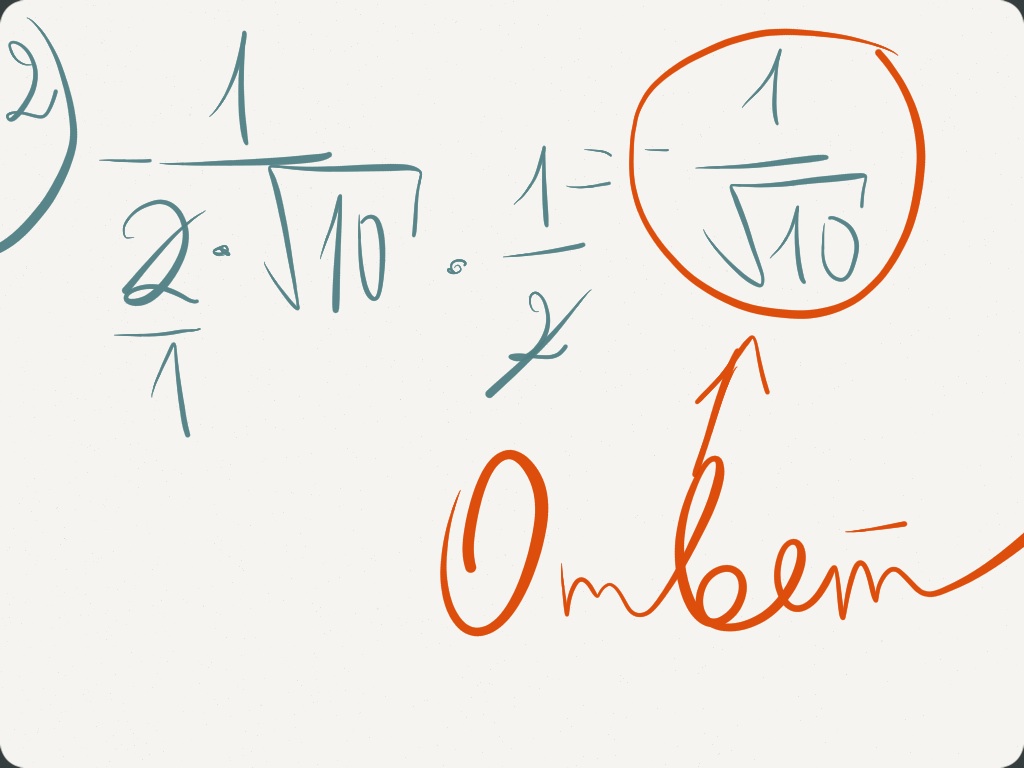 2) - 1 / (2/1 · √10) · 1/2 = - 1/√10
Ответ